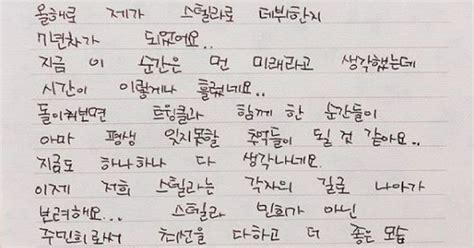 올해로 제가 스텔라로 데뷔한지
7년차가 되었어요..
지금 이 순간은 먼 미래라고 생각했는데
시간이 이렇게나 흘렀네요..
돌이켜보면 트윙클과 함께 한 순간들이
아마 평생 잊지못할 추억들이 될 것 같아요..
지금도 하나하나 다 생각나네요.
이제 저희 스텔라는 각자의 길로 나아가
보려해요... 스텔라 민희가 아닌
주민희로서 최선을 다하고 더 좋은 모습